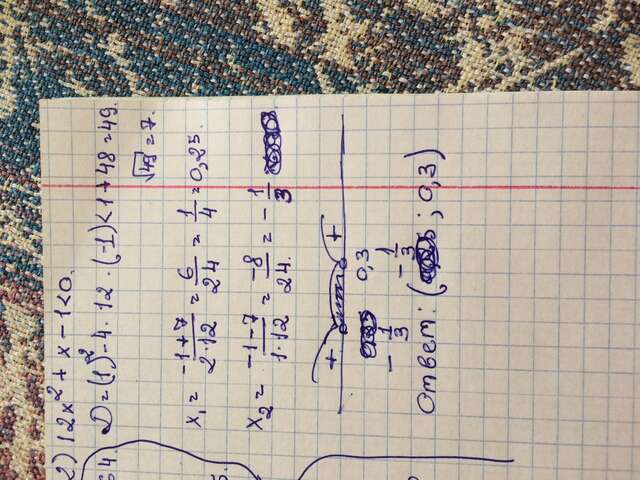 2) 12x² + x - 1 < 0.
64.
D = (1)² - 4 · 12 · (-1) < 1 + 48 = 49.
√49 = 7.
x₁ = (-1+7)/(2·12) = 6/24 = 1/4 = 0,25.
x₂ = (-1-7)/(1·12) = -8/24. = - 1/3
+ +
0,3
- 1/3
- 1/3
Ответ: ( ; 0,3)